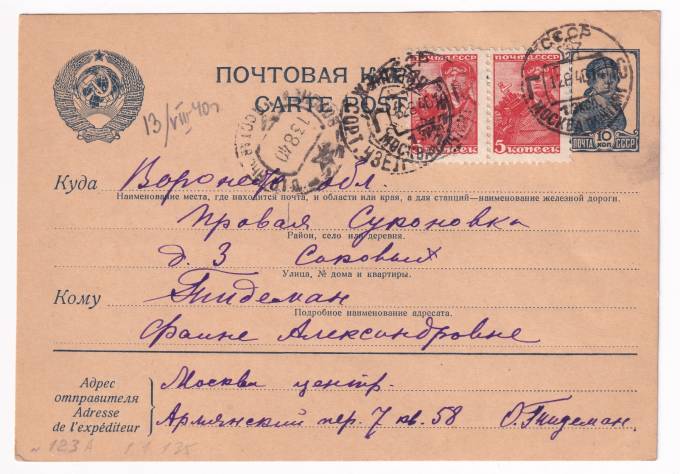 ПОЧТОВАЯ КАР
CARTE POST
ПОЧТА СССР
ПОЧТА СССР
5 КОПЕЕК
СССР
12 8 40
МОСКВА
10 КОП.
ПОЧТА СССР
13/VIII 40г
13 8 40
Куда Воронеж обл.
Наименование места, где находится почта, и области или края, а для станций—наименование железной дороги.
Правая Суконовка
Район, село или деревня.
д. 3 Соковых
Улица, № дома и квартиры.
Кому Тидеман
Подробное наименование адресата.
Фаине Александровне
Адрес отправителя
Adresse de l'expéditeur
Москва центр.
Армянский пер. 7 кв. 58 О. Тидеман.
123А